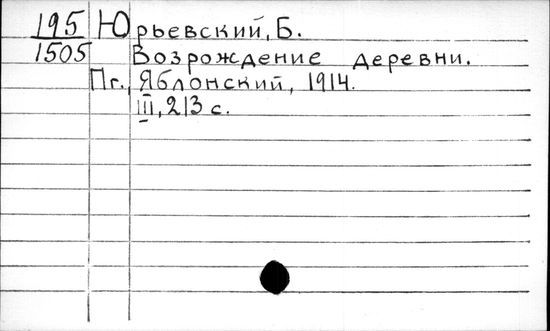 195 Юрьевский, Б.
1505 Возрождение деревни.
Пг., Яблонский, 1914.
III, 213 с.